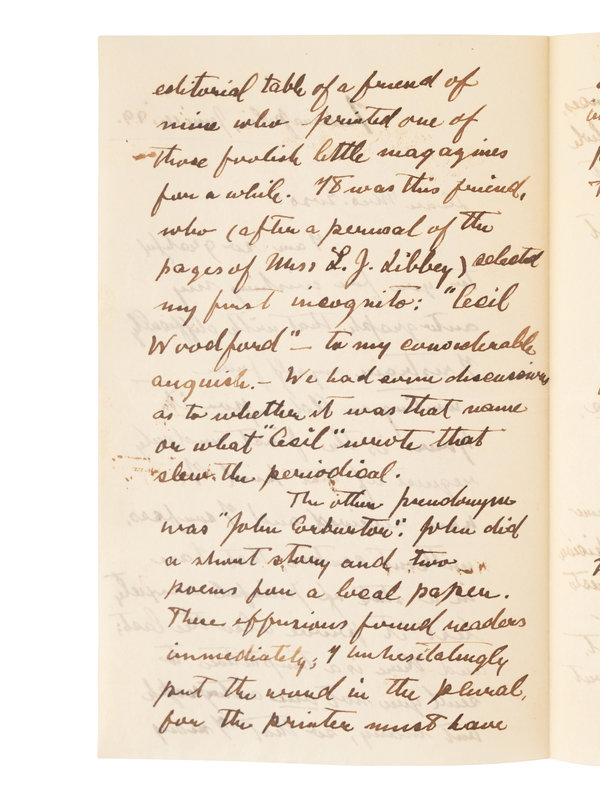 editorial table of a friend of
mine who printed one of
those foolish little magazines
for a while. It was this friend,
who (after a perusal of the
pages of Miss L. J. Libbey) selected
my first incognito: "Cecil
Woodford" — to my considerable
anguish. — We had some discussions
as to whether it was that name
or what "Cecil" wrote that
slew the periodical.
The other pseudonym
was "John". John did
a short story and two
poems for a local paper.
These effusions found readers
immediately; I unhesitatingly
put the word in the plural,
for the printer must have